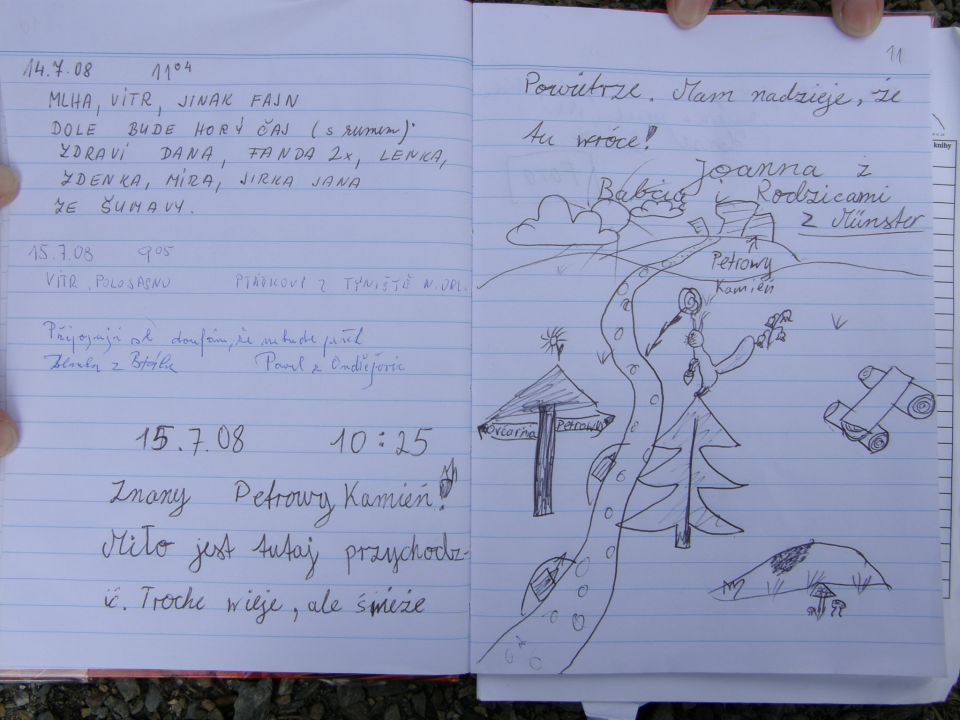 14.7.08 11⁰⁴
MLHA, VÍTR, JINAK FAJN
DOLE BUDE HORÝ ČAJ (s rumem).
ZDRAVÍ DANA, FANDA 2x, LENKA,
ZDENKA, MÍRA, JIRKA JANA
ZE ŠUMAVY.
15.7.08 9⁰⁵
VÍTR, POLOJASNO PTÁČKOVI Z TÝNIŠTĚ N. ORL.
Připojuji se doufám, že nebude pršet
z Pavel z Ondřejovic
15.7.08 10:25
Znany Petrowy Kamień!
Miło jest tutaj przychodz-
ić. Troche wieje, ale świeże
11
Powietrze. Mam nadzieje, że
tu wróce!
Joanna z
Babcią i Rodzicami
z Münster
Petrowy
Kamień
Ovčarnia Petrowy
knihy